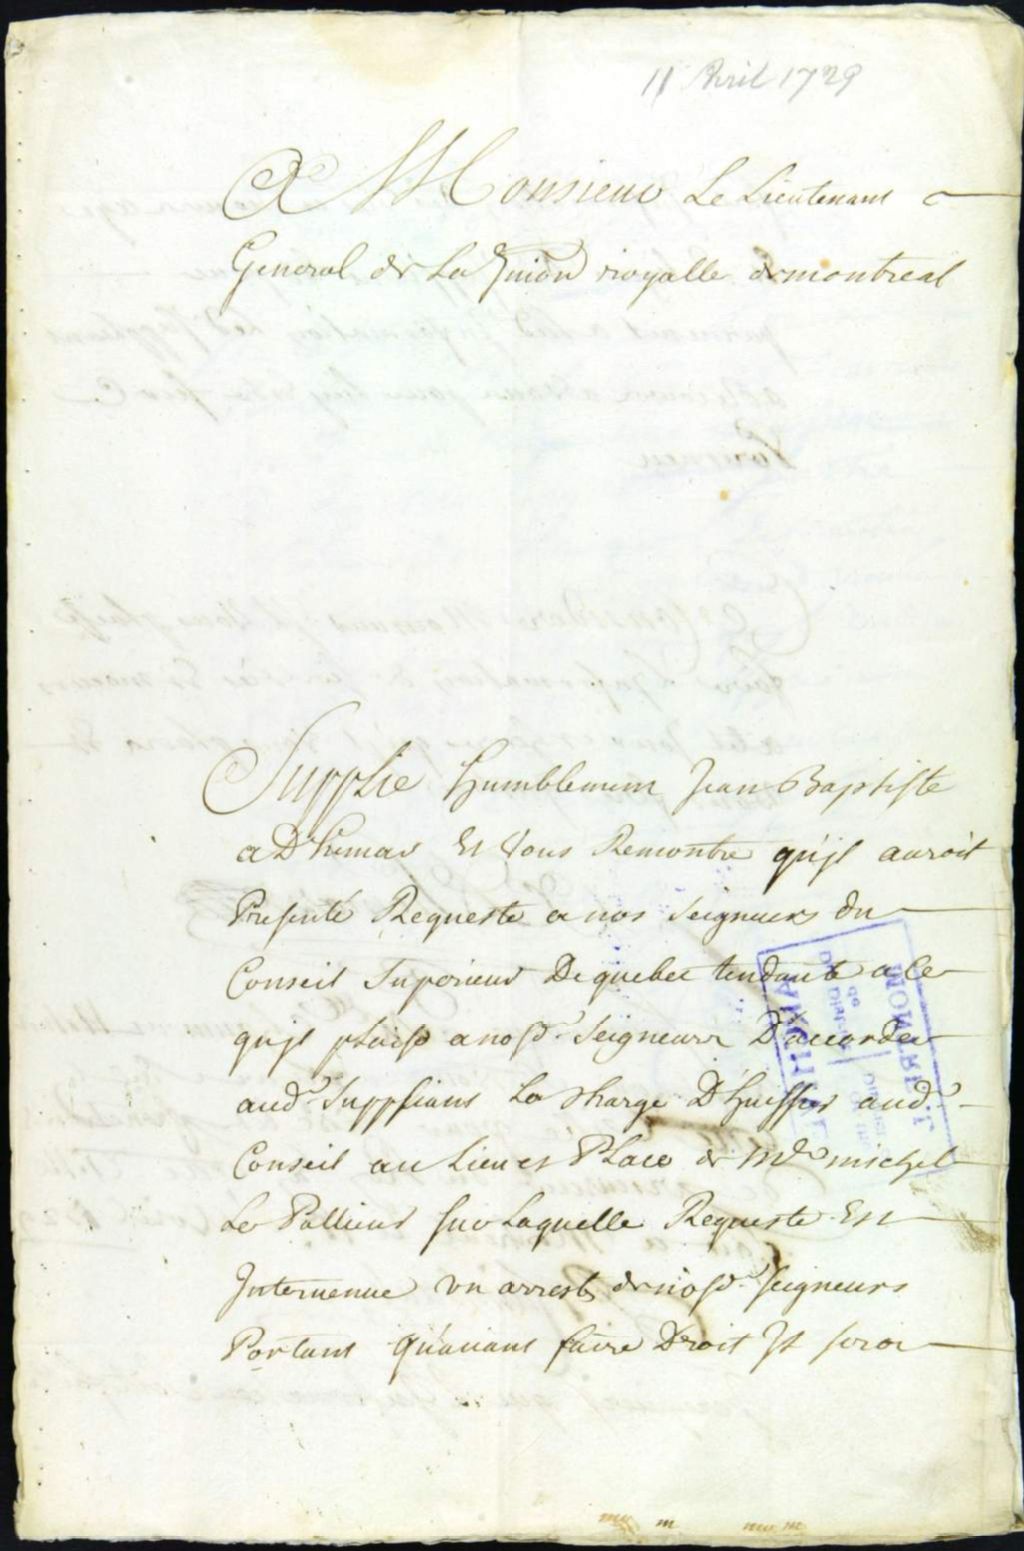 11 Avril 1729
A Monsieur Le Lieutenant
General de La Juion royalle de montreal
Supplie humblement Jean Baptiste
aDhemar Et Vous Remontre qu'jl auroit
Presenté Requeste a nos seigneurs du
Conseil Superieur De quebec tendante a Ce
qu'jl plaise a nosd. Seigneurs D'accorder
aud. Suppliant La charge D'huissier aud.
Conseil au Lieu et Place de Me michel
Le Pallieur sur Laquelle Requeste Est
Interuenue vn arrest de nosd. seigneurs
Portant qu'auant faire Droit Jl seroit